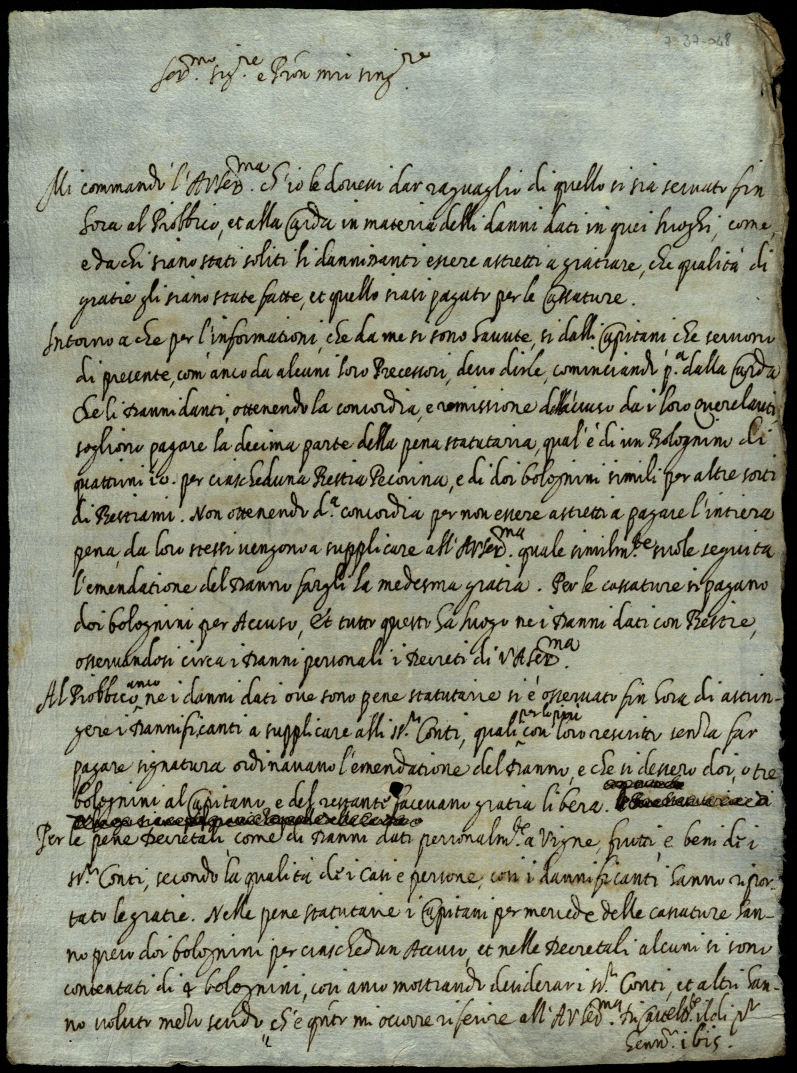 7-37-048
Ser.mo sig.re e Pron mio sing.re
Mi commandò l'A.V.Ser.ma ch'io le dovessi dar raguaglio di quello si sia servato fin
hora al Piobbico, et alla Carda in materia delli danni dati in quei luoghi, come,
e da chi siano stati soliti li dannidanti essere astretti a gratiare, che qualità di
gratie gli siano state fatte, et quello siasi pagato per le Cassature.
Intorno a che per l'informationi, che da me si sono havute, si dalli Capitani che servono
di presente, com'anco da alcuni loro Precessori, devo dirle, cominciando p.a dalla Carda
che li Dannidanti, ottenendo la concordia, e remissione dell'accuso da i loro Querelanti,
sogliono pagare la decima parte della pena statutaria, qual'è di un Bolognino di
quattrini 10. per ciascheduna Bestia Pecorina, e di doi bolognini simili per altre sorti
di Bestiami. Non ottenendo d.a concordia per non essere astretti a pagare l'intiera
pena, da loro stessi vengono a supplicare all'A.V.Ser.ma quale similm.te suole seguita
l'emendatione del Danno fargli la medesma gratia. Per le cassature si pagano
doi bolognini per Accuso, Et tutto questo ha luogo ne i Danni dati con Bestie,
osservandosi circa i Danni personali i Decreti di V.A.Ser.ma.
Al Piobbico anco, ne i danni dati ove sono pene statutarie si è osservato fin hora di astrin-
gere i Dannificanti a supplicare alli ss.ri Conti, quali per lo più con loro rescritto senza far
pagare signatura ordinavano l'emendatione del Danno, e che si dessero doi, o tre
bolognini al Capitano, e del restante facevano gratia libera.
Per le pene Decretali come di Danni dati personalm.te a Vigne, frutti, e beni de i
ss.ri Conti, secondo la qualità de i Casi e persone, così i dannificanti hanno ripor-
tato le gratie. Nelle pene statutarie i Capitani per mercede delle cassature han-
no preso doi bolognini per ciaschedun Accuso, et nelle Decretali alcuni si sono
contentati di 4 bolognini, così anco mostrando desiderar i ss.ri Conti, et altri han-
no voluto mezo scudo ch'è q.nto mi occorre riferire all'A.V.Ser.ma Di Casteld.te il di p.o
Genn.ro 1615.